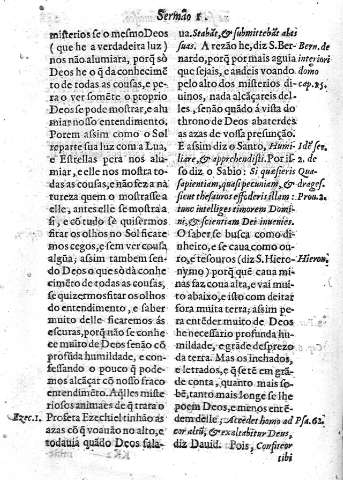 Sermão 1.
misterios se o mesmo Deos
(que he a verdadeira luz)
nos não alumiara, porq̃ sò
Deos he o q̃ da conhecimẽ
to de todas as cousas, e pe-
ra o ver somẽte o proprio
Deos se pode mostrar, e alu
miar nosso entendimento.
Porem assim como o Sol
reparte sua luz com a Lua,
e Estrellas pera nos alu-
miar, e elle nos mostra to-
das as cousas, e não fez a na
tureza quem o mostrasse a
elle, antes elle se mostra a
si, e cõ tudo se quisermos
fitar os olhos no Sol ficare
mos cegos, e sem ver cousa
algũa; assim tambem sen-
do Deos o que sò dà conhe
cimẽto de todas as cousas,
se quizermos fitar os olhos
do entendimento, e saber
muito delle ficaremos ás
escuras, porq̃ não se conhe
ce muito de Deos senão cõ
profũda humildade, e con-
fessando o pouco q̃ pode-
mos alcãçar cõ nosso fraco
entendimẽto. Aq̃lles miste
riosos animaes de q̃ trata o
Ezec. 1.
Profeta Ezechiel tinhão as
azas cõ q̃ voauão no alto, e
todauia quãdo Deos fala-
ua. Stabãt, & submittebãt alas
suas. A rezão he, diz S. Ber-
nardo, porq̃ por mais aguia
que sejais, e andeis voando
pelo alto dos misterios di-
uinos, nada alcãçareis del-
les, senão quãdo á vista do
throno de Deus abaterdes
as azas de vossa presunção.
Bern. de
interiori
domo
cap. 25.
E assim diz o Santo, Humi-
liare, & apprehendisti. Por is-
so diz o Sabio: Si quæsieris
sapientiam, quasi pecuniam, &
sicut thesauros effoderis illam:
tunc intelliges timorem Domi-
ni, & scientiam Dei inuenies.
Prou. 2.
O saber se busca como di-
nheiro, e se caua como ou-
ro, e tesouros (diz S. Hiero-
nymo) porq̃ quẽ caua mi-
Hieron.
nas faz coua alta, e vai mui
to abaixo, e isto com deitar
fora muita terra; assim pe-
ra entẽder muito de Deos
he necessario profunda hu-
mildade, e grãde desprezo
da terra. Mas os inchados,
e letrados, e q̃ se tẽ em grã-
de conta, quanto mais so-
bẽ, tanto mais longe se lhe
poem Deos, e menos entẽ-
dem delle; Accedet homo ad
cor altũ, & exaltabitur Deus,
Psa. 62.
diz Dauid. Pois, Confiteor
tibi